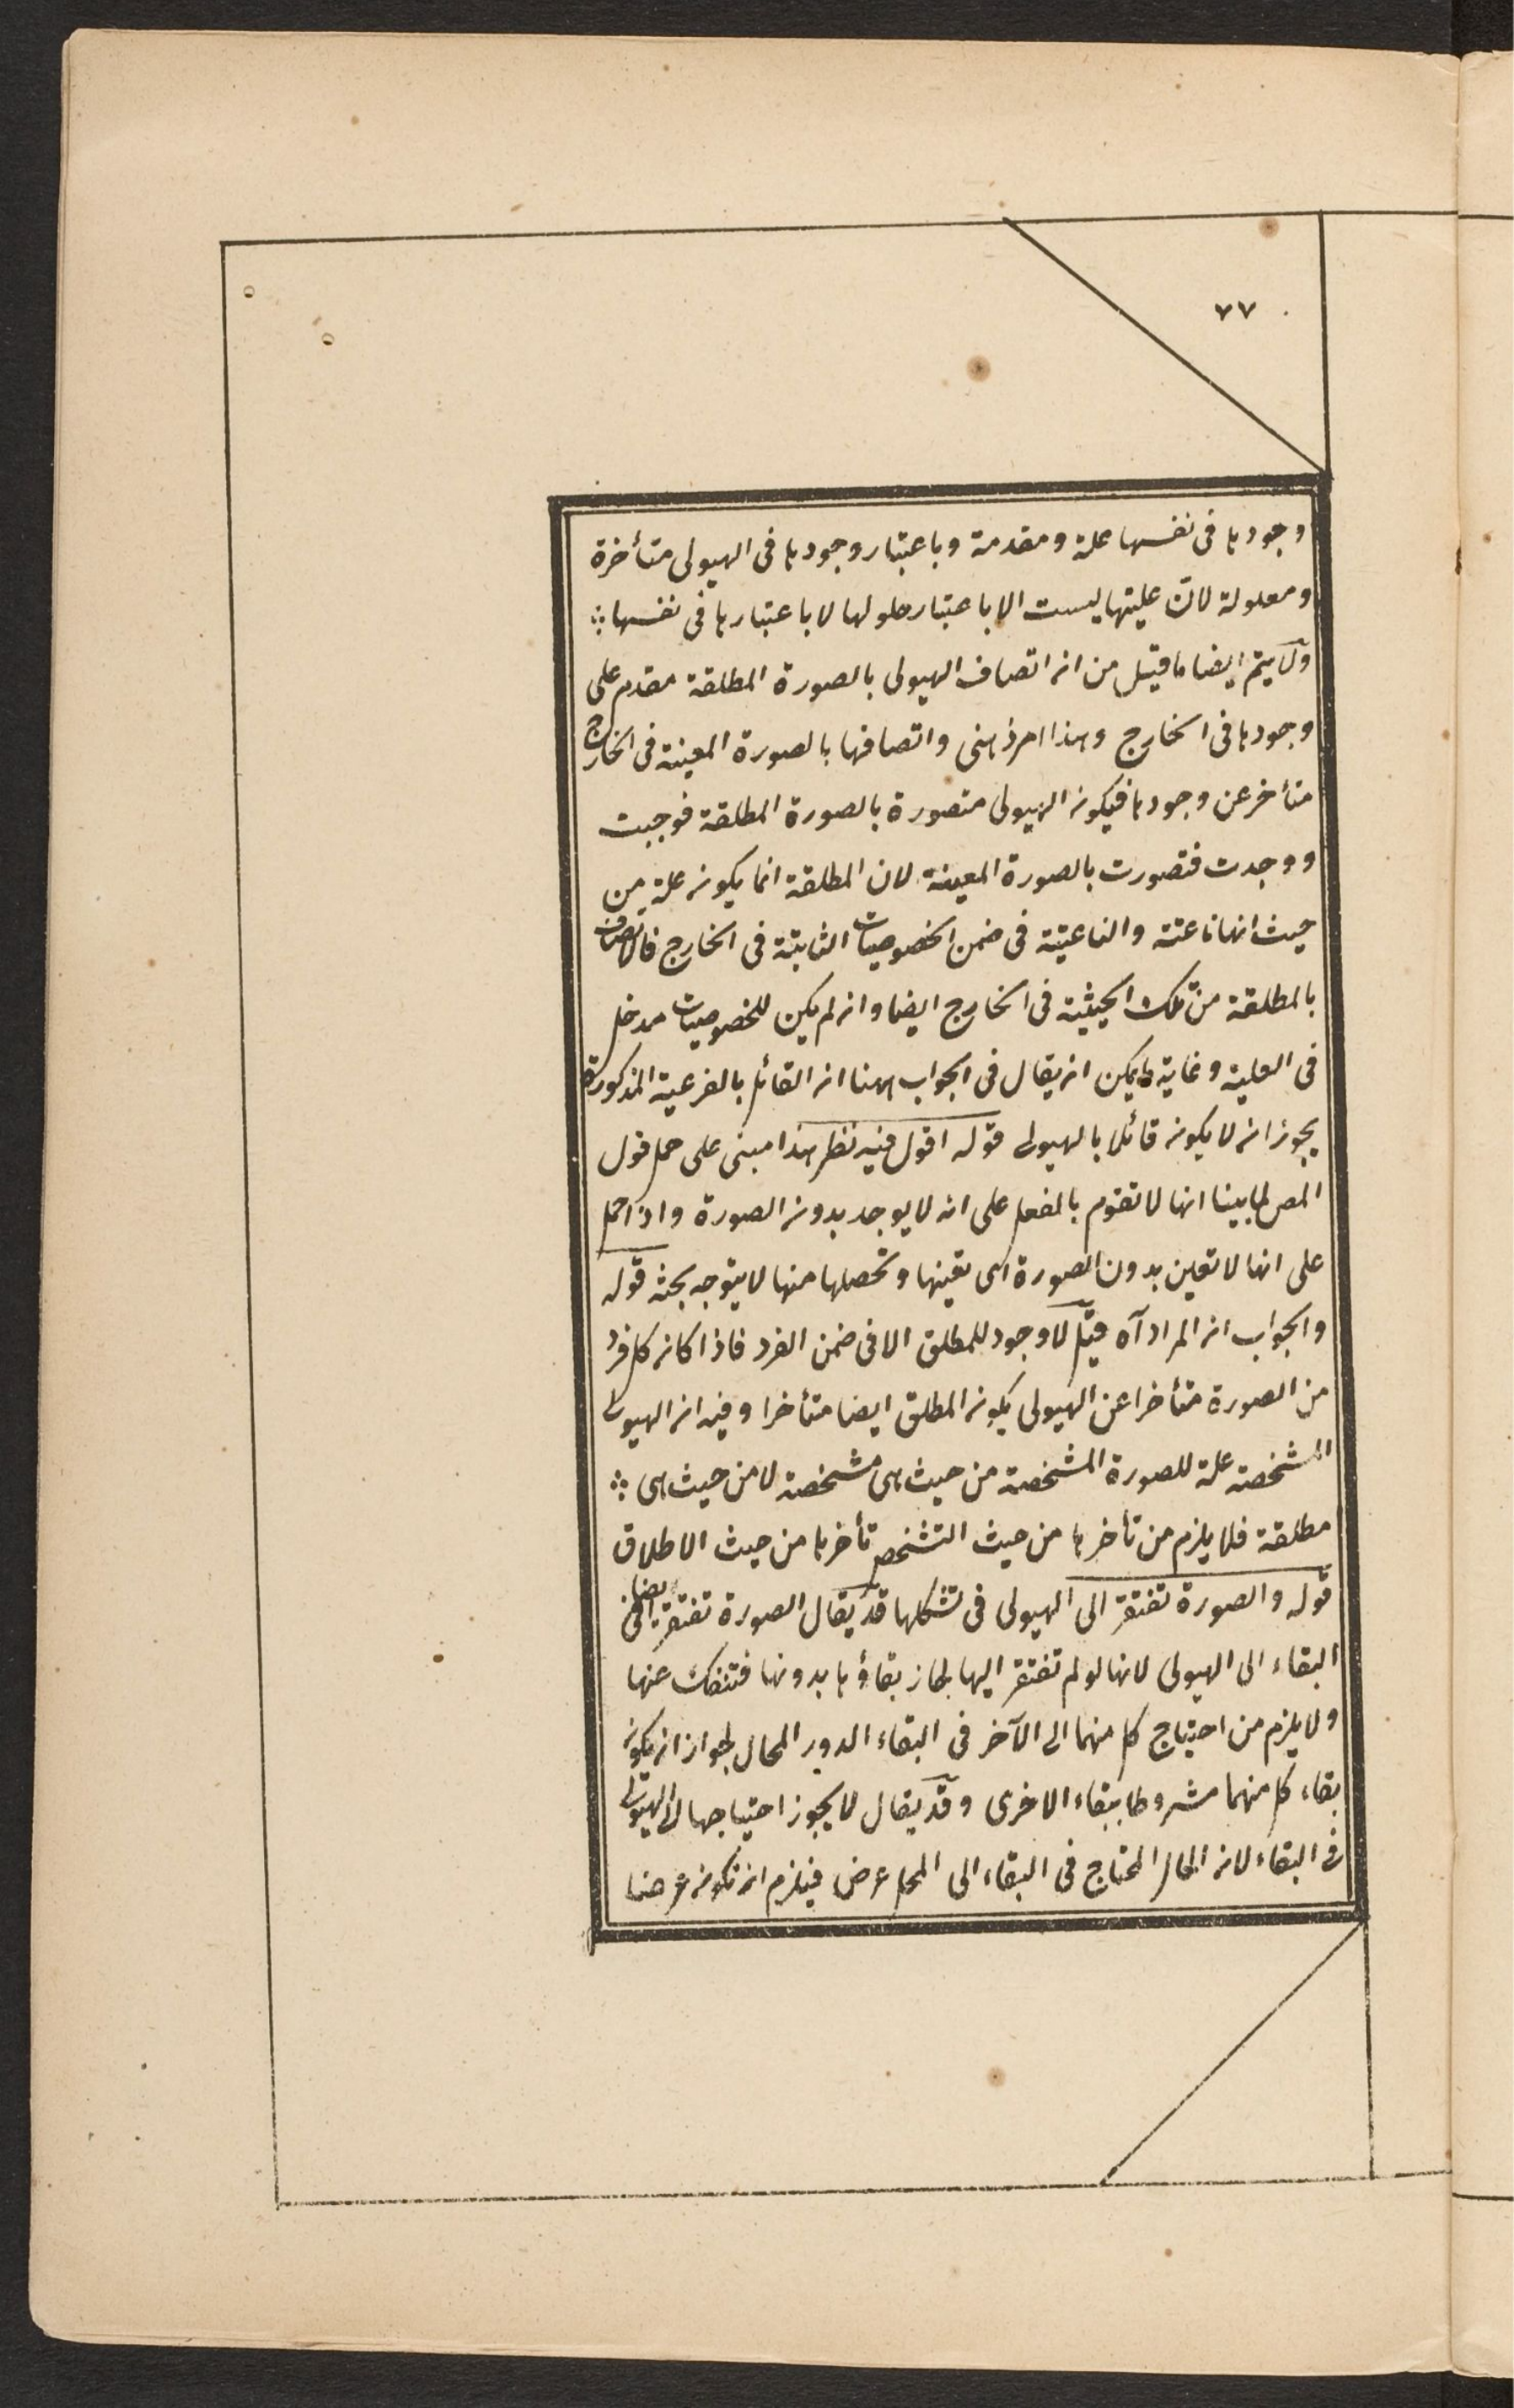 ٧٧
وجودها فى نفسها علة ومقدمة وباعتبار وجودها فى الهيولى متأخرة
ومعلولة لانّ عليتها ليست الا باعتبار حلولها لا باعتبارها فى نفسها ⁖
ولا يتم ايضا ما قيل من ان اتصاف الهيولى بالصورة المطلقة مقدم على
وجودها فى الخارج وهذا امر ذهنى واتصافها بالصورة المعينة فى الخارج
متأخر عن وجودها فيكون الهيولى متصورة بالصورة المطلقة فوجبت
ووجدت فتصورت بالصورة المعينة لان المطلقة انما يكون علة من
حيث انها ناعتة والناعتية فى ضمن الخصوصيات الثابتة فى الخارج فالاتصاف
بالمطلقة من تلك الحيثية فى الخارج ايضا وان لم يكن للخصوصيات مدخل
فى العلية وغاية ما يمكن ان يقال فى الجواب ههنا ان القائل بالفرعية المذكورة
يجوز ان لا يكون قائلا بالهيولى قوله اقول فيه نظر هذا مبنى على حمل قول
المص لما بينا انها لا تقوم بالفعل على انه لا يوجد بدون الصورة واذا حمل
على انها لا تعين بدون الصورة اى تعينها وتحصلها منها لا يتوجه بحثه قوله
والجواب ان المراد آه قيل لا وجود للمطلق الا فى ضمن الفرد فاذا كان كل فرد
من الصورة متأخرا عن الهيولى يكون المطلق ايضا متأخرا وفيه ان الهيولى
المشخصة علة للصورة المشخصة من حيث هى مشخصة لا من حيث هى ⁖
مطلقة فلا يلزم من تأخرها من حيث التشخص تأخرها من حيث الاطلاق
قوله والصورة تفتقر الى الهيولى فى تشكلها قد يقال الصورة تفتقر ايضا فى
البقاء الى الهيولى لانها لو لم تفتقر اليها لجاز بقاؤها بدونها فتنفك عنها
ولا يلزم من احتياج كل منهما الى الآخر فى البقاء الدور المحال لجواز ان يكون
بقاء كل منهما مشروطا ببقاء الاخرى وقد يقال لا يجوز احتياجها الى الهيولى
فى البقاء لان الحال المحتاج فى البقاء الى المحل عرض فيلزم ان تكون عرضا